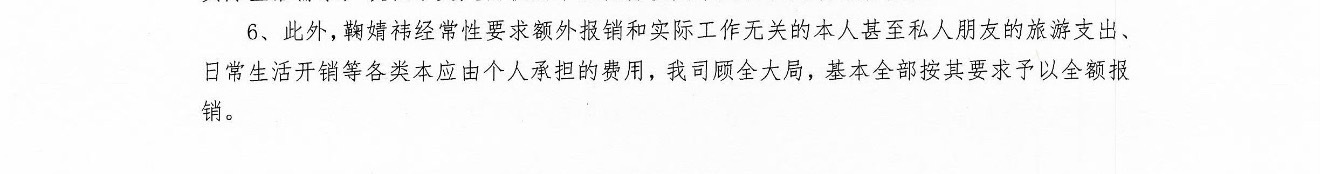 6、此外，鞠婧祎经常性要求额外报销和实际工作无关的本人甚至私人朋友的旅游支出、
日常生活开销等各类本应由个人承担的费用，我司顾全大局，基本全部按其要求予以全额报
销。